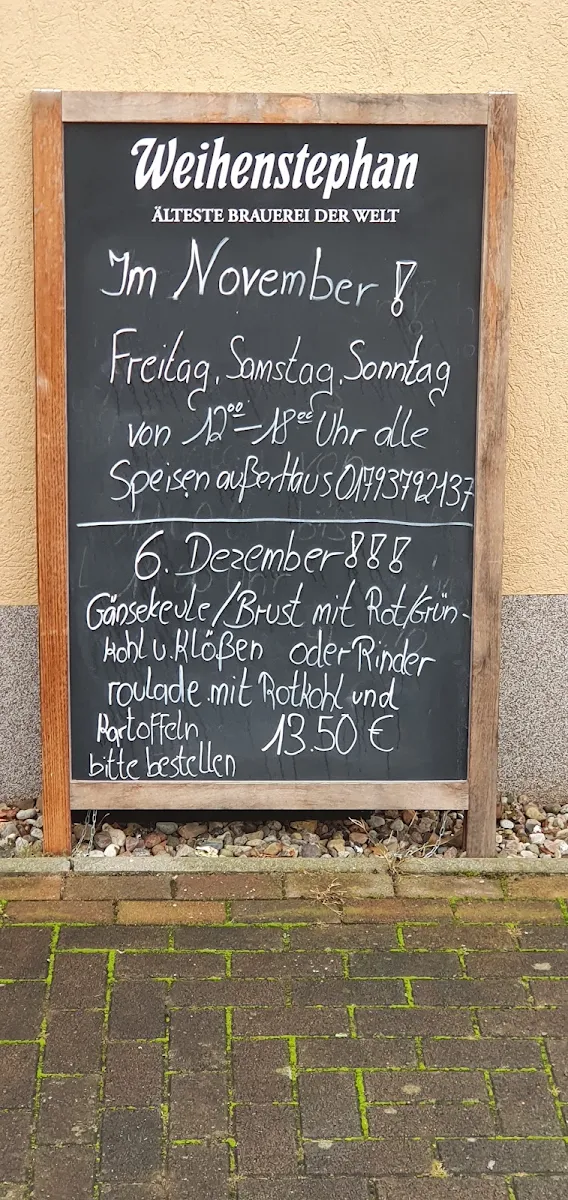 Weihenstephan
ÄLTESTE BRAUEREI DER WELT
Im November!
Freitag, Samstag, Sonntag
von 12⁰⁰-18⁰⁰ Uhr alle
Speisen außerHaus 01793792137
6. Dezember!!!
Gänsekeule/Brust mit Rot/Grün-
kohl u. Klößen oder Rinder
roulade mit Rotkohl und
Kartoffeln 13.50 €
bitte bestellen